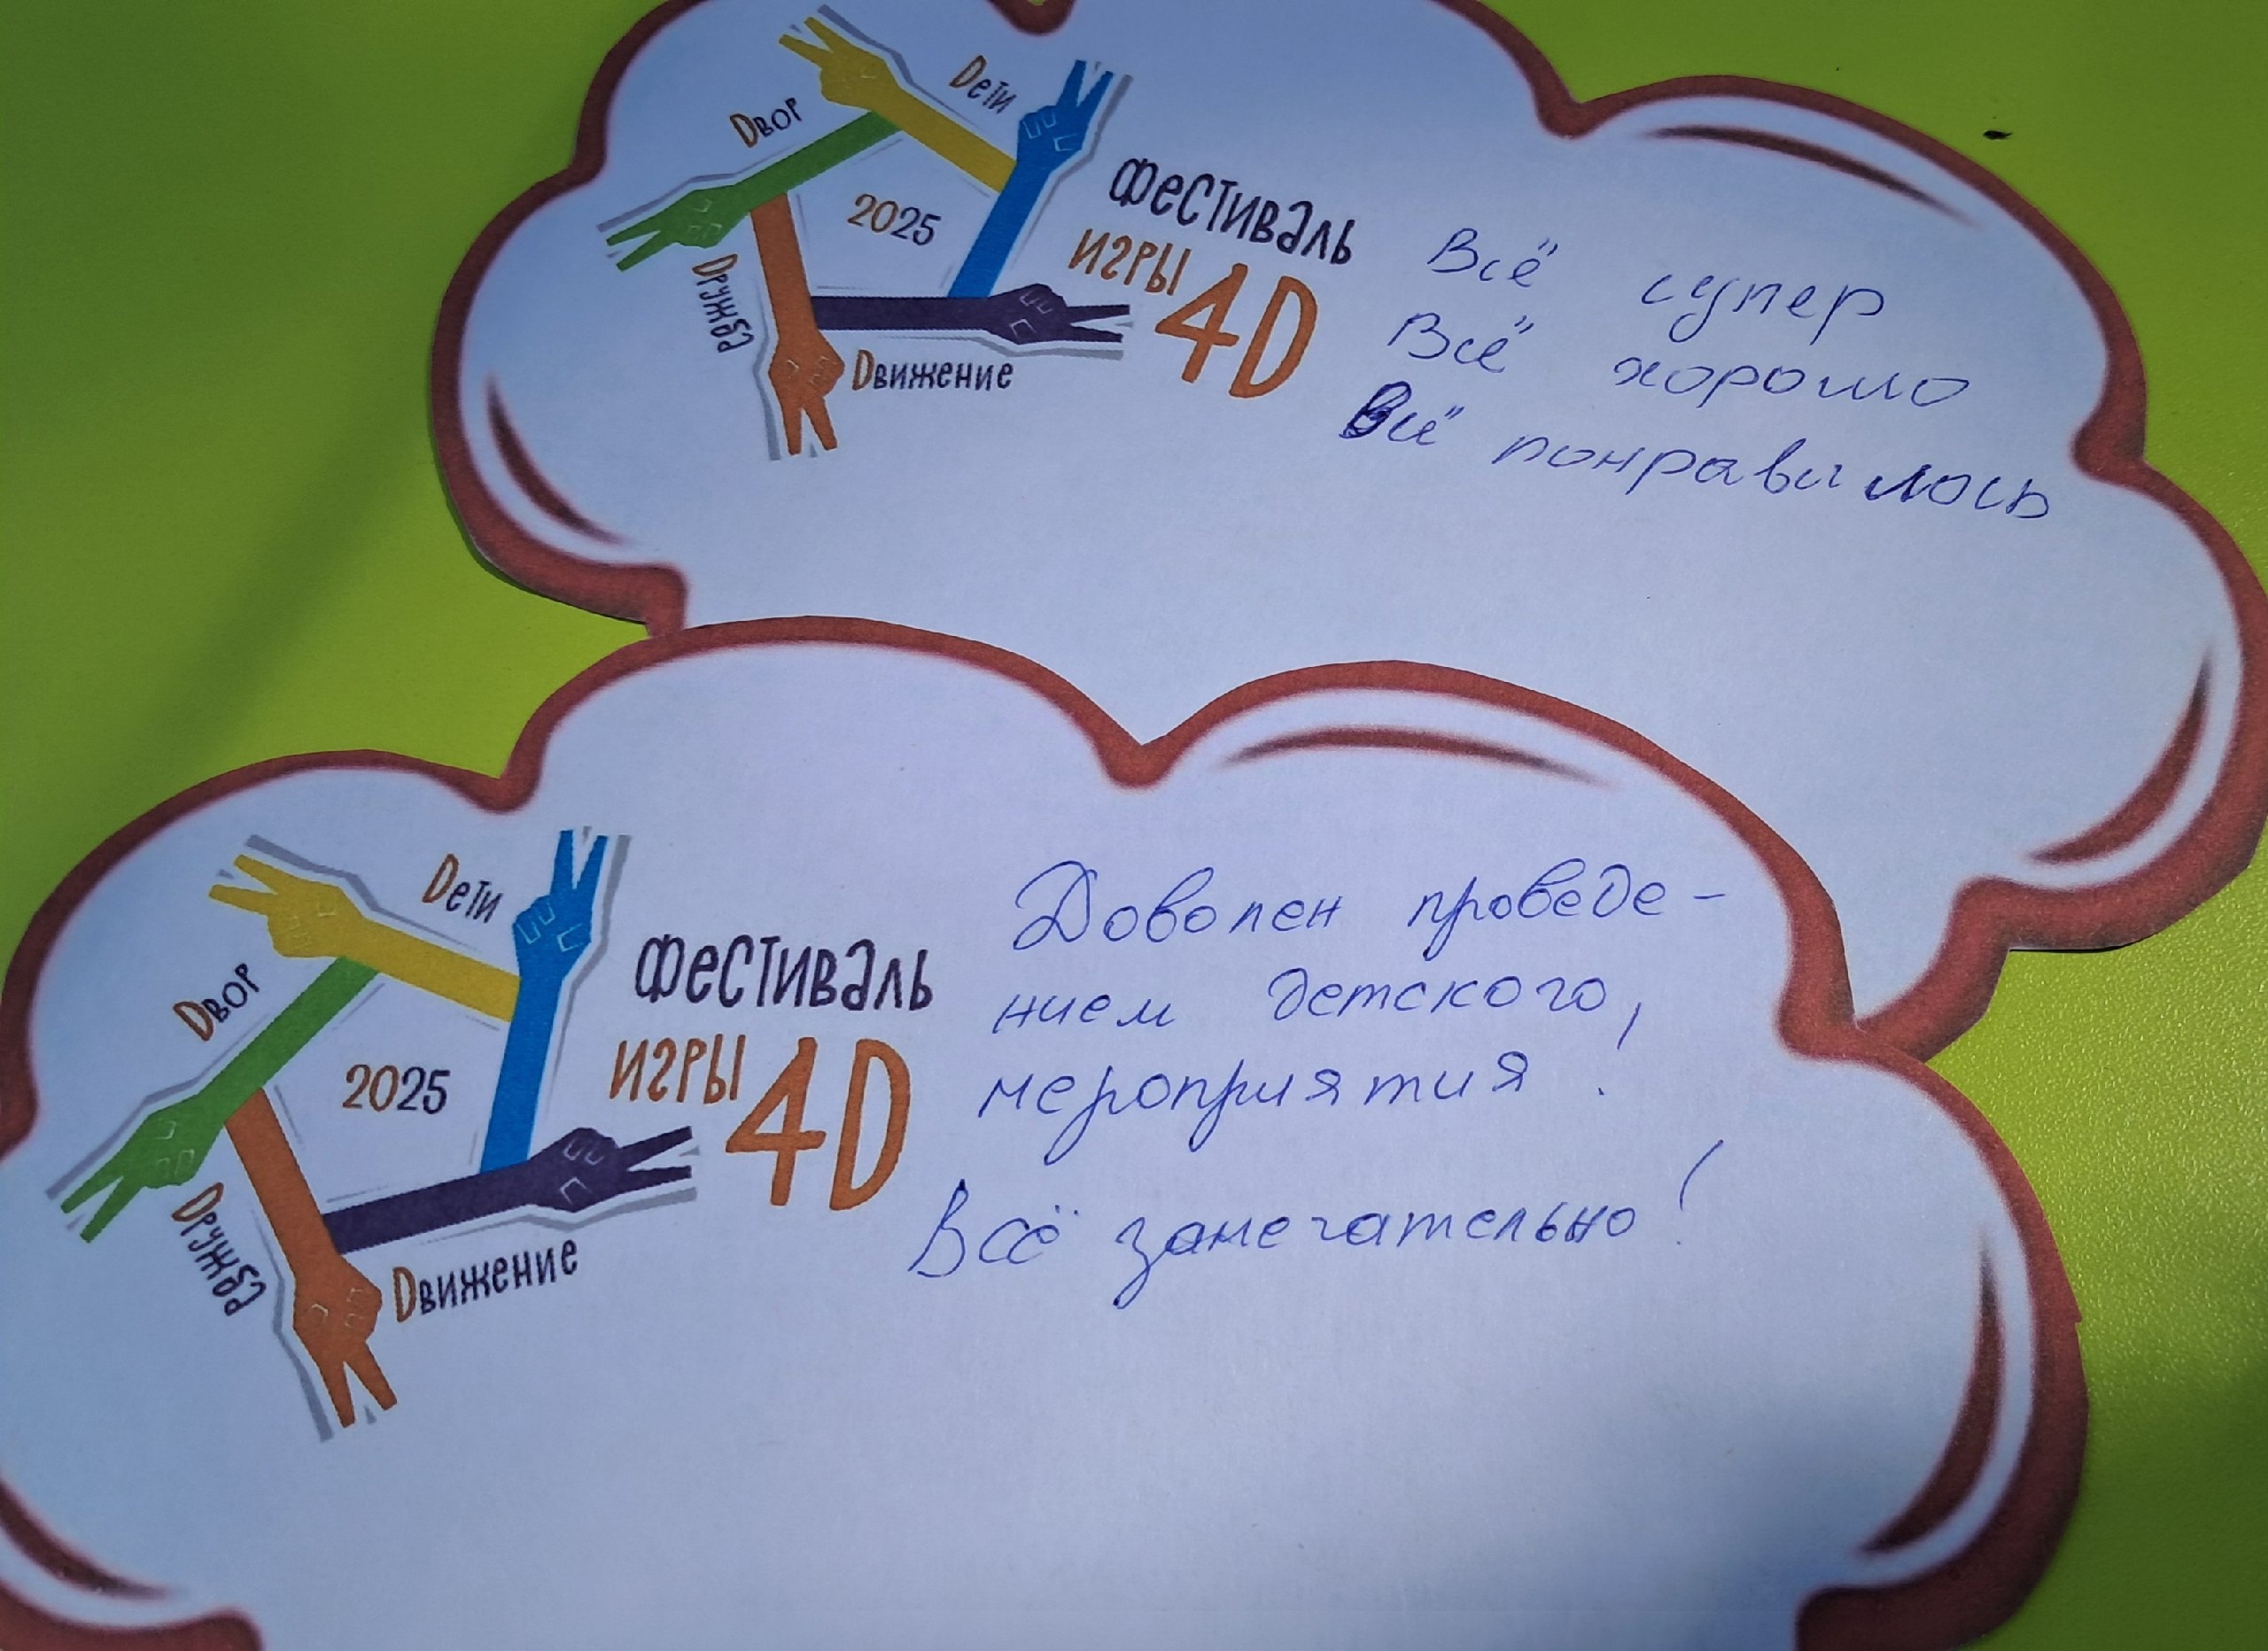 Dети
Dвор
2025
Dружба
Dвижение
Фестиваль
игры 4D
Всё супер
Всё хорошо
Всё понравилось
Dети
Dвор
2025
Dружба
Dвижение
Фестиваль
игры 4D
Доволен проведе-
нием детского,
мероприятия!
Всё замечательно!